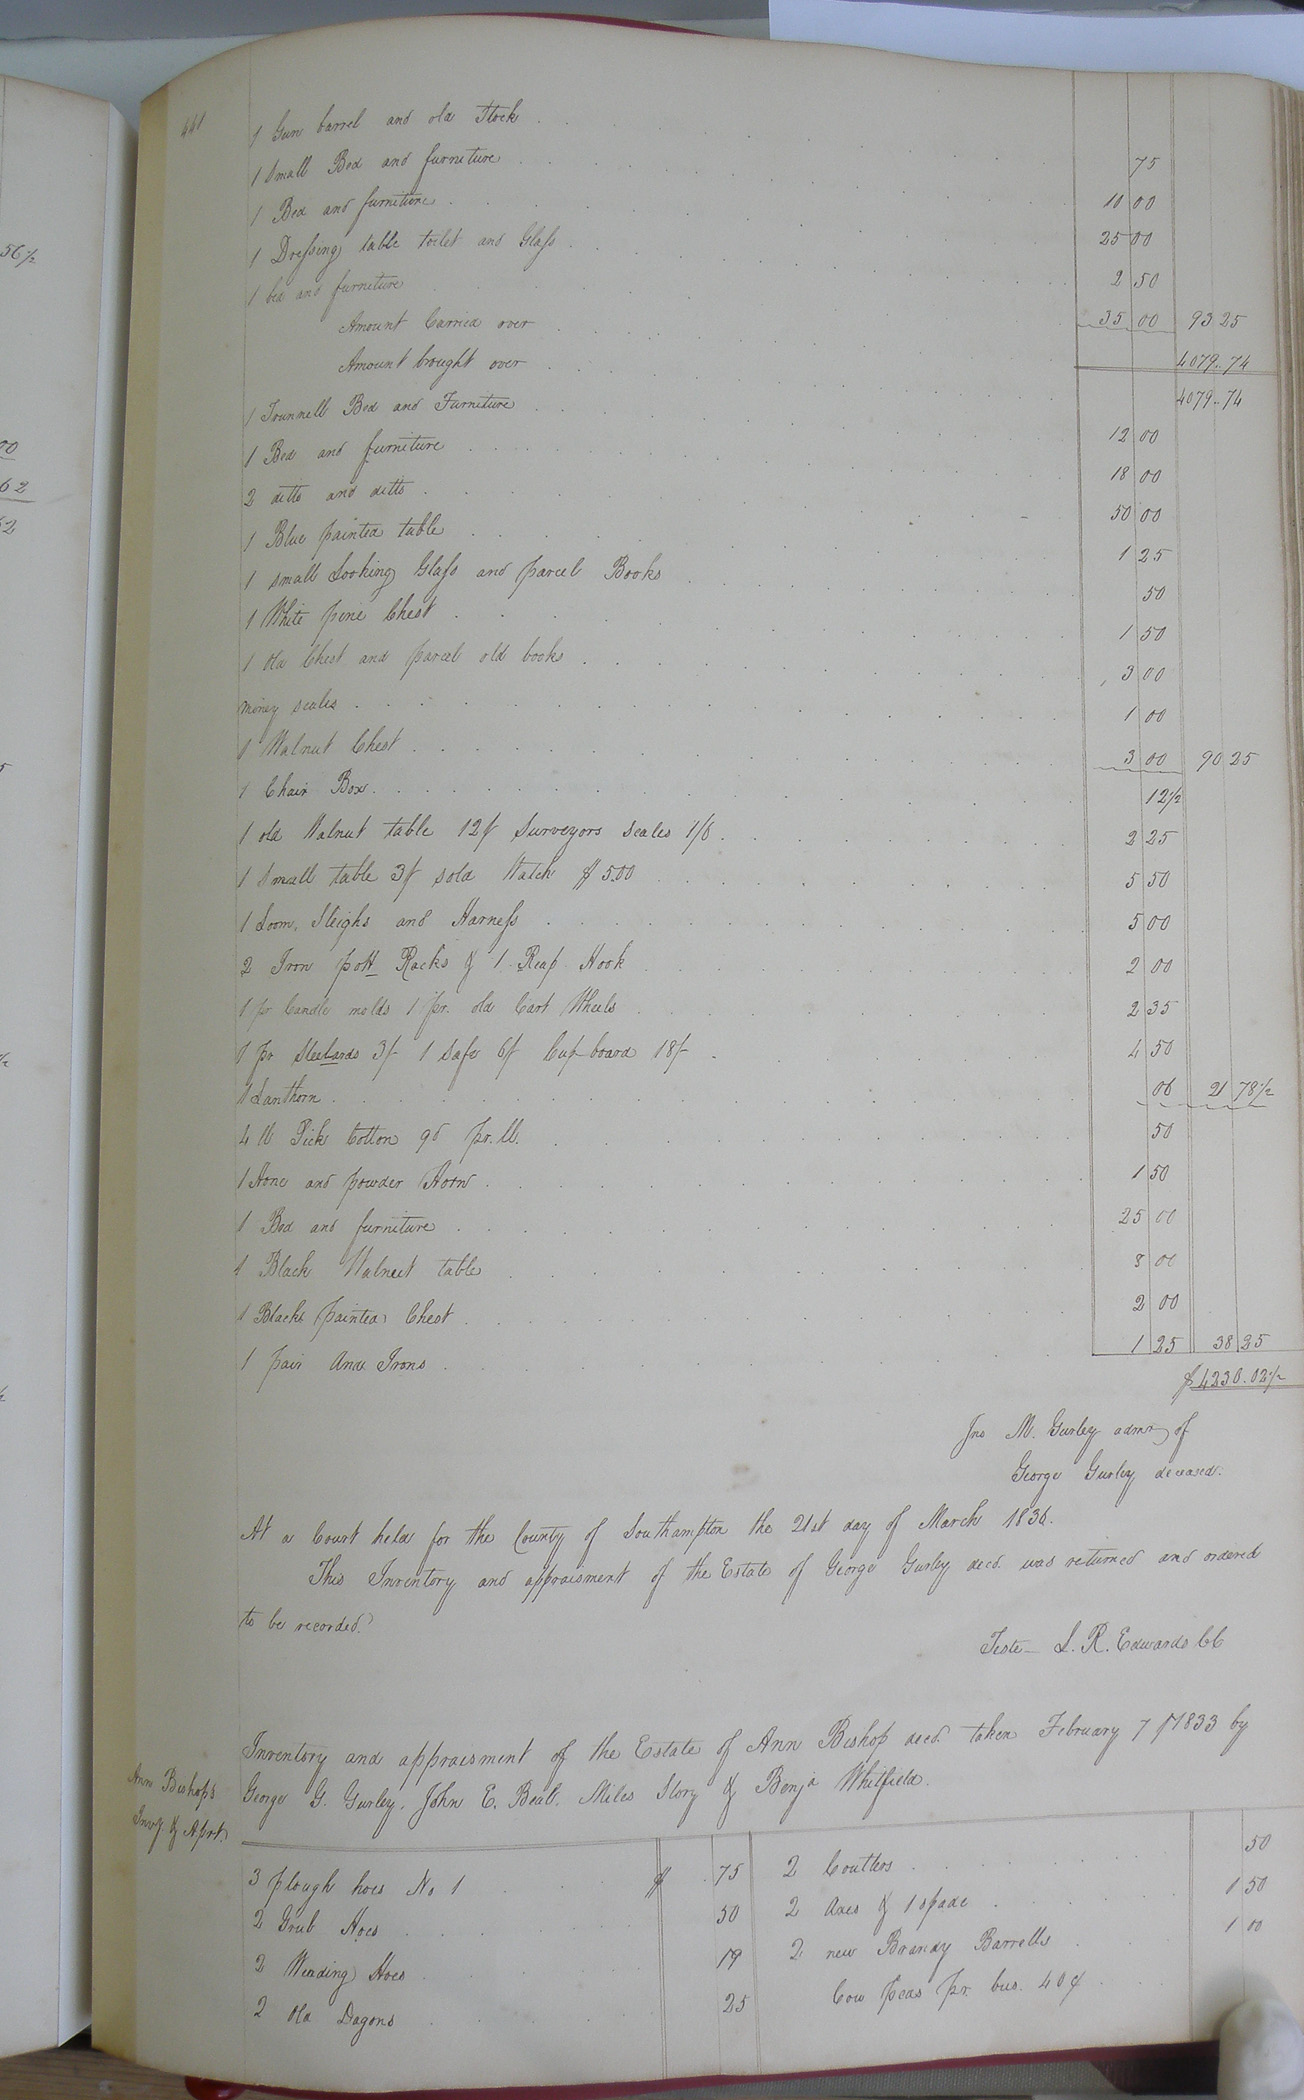 441
1 Gun barrel and old Stock . . . 75
1 Small Bed and furniture . . . 10 00
1 Bed and furniture . . . 25 00
1 Dressing table toilet and Glass . . . 2 50
1 bed and furniture . . . 35 00 93 25
Amount Carried over . . . 4079..74
Amount brought over . . . 4079..74
1 Trunnell Bed and Furniture . . . 12 00
1 Bed and furniture . . . 18 00
2 ditto and ditto . . . 50 00
1 Blue painted table . . . 1 25
1 small Looking Glass and parcel Books . . . 50
1 White pine Chest . . . 1 50
1 Old Chest and parcel old books . . . 3 00
money scales . . . 1 00
1 Walnut Chest . . . 3 00 90 25
1 Chair Box . . . 12½
1 old Walnut table 12/ Surveyors scales 1/6 . . . 2 25
1 Small table 3/ sold Watch $5.00 . . . 5 50
1 Loom, Sleighs and Harness . . . 5 00
2 Iron pott Racks & 1 Reap Hook . . . 2 00
1 pr Candle molds 1 pr. old Cart Wheels . . . 2 35
1 pr Steelards 3/- 1 Safe 6/ Cupboard 18/- . . . 4 50
1 Lanthorn . . . 06 21 78½
4 lb Pick Cotton 9d pr. lb. . . . 50
1 Hone and powder Horn . . . 1 50
1 Bed and furniture . . . 25 00
1 Black Walnut table . . . 8 00
1 Black painted Chest . . . 2 00
1 pair And Irons . . . 1 25 38 25
$4230.02½
Jno M. Gurley admr of
George Gurley deceased.
At a Court held for the County of Southampton the 21st day of March 1836.
This Inventory and appraisment of the Estate of George Gurley decd. was returned and ordered
to be recorded.
Teste— L. R. Edwards CC
Inventory and appraisment of the Estate of Ann Bishop decd. taken February 7th 1833 by
George G. Gurley, John E. Beal. Miles Story & Benja Whitfield.
Ann Bishops
Invy & Aprt.
3 plough hoes No 1 . . . $ 75
2 Grub Hoes . . . 50
2 Weading Hoes . . . 19
2 Old Dagons . . . 25
2 Coulters . . . 50
2 Axes & 1 spade . . . 1 50
2 new Brandy Barrells . . . 1 00
Cow peas pr. bus. 40¢